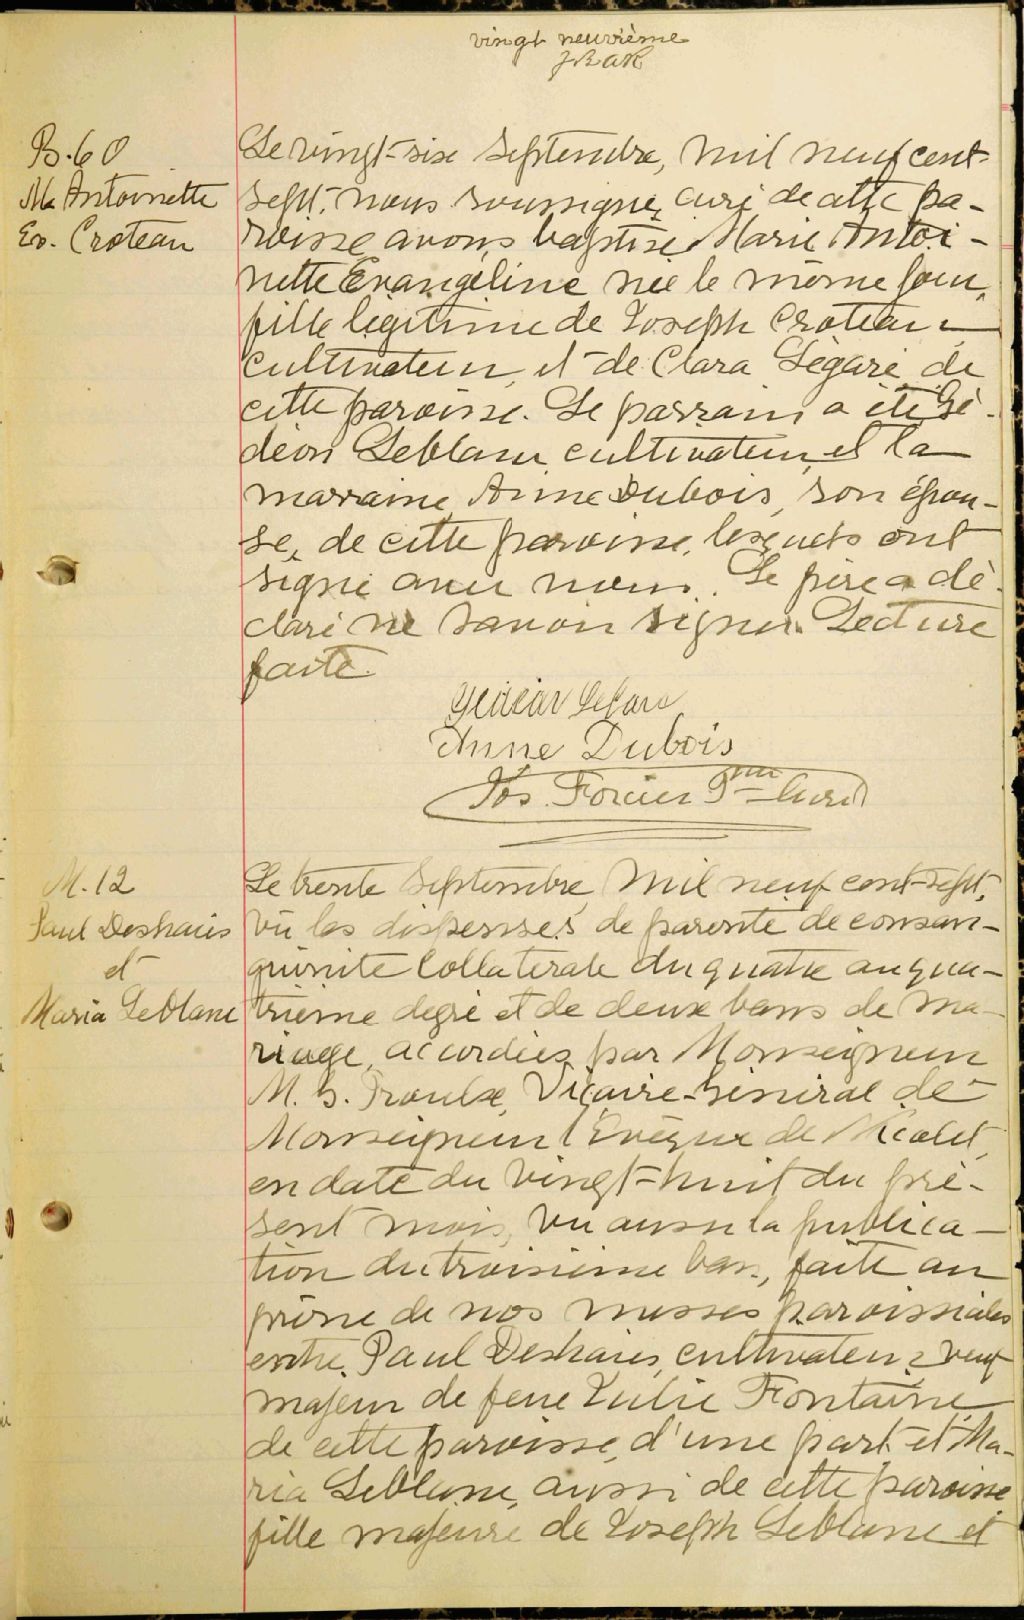 vingt neuvième
JBAR
B. 60
M. Antoinette
Ev. Croteau
Le vingt-six Septembre, mil neuf cent-
sept, nous soussigné, curé de cette pa-
roisse avons baptisé Marie Antoi-
nette Evangéline née le même jour,
fille légitime de Joseph Croteau
cultivateur, et de Clara Légaré de
cette paroisse. Le parrain a été Gé-
déon Leblanc cultivateur et la
marraine Anne Dubois, son épou-
se, de cette paroisse, lesquels ont
signé avec nous. Le père a dé-
claré ne savoir signer. Lecture
faite.
Anne Dubois
Jos. Forcier Ptre Curé
M. 12
Paul Deshaies
et
Maria Leblanc
Le trente Septembre, mil neuf cent-sept,
vû les dispenses de parenté de consan-
guinité collatérale du quatre au qua-
trième degré et de deux bans de ma-
riage, accordées par Monseigneur
M. G. Proulx, Vicaire-Général de
Monseigneur l'Evêque de Nicolet,
en date du vingt-huit du pré-
sent mois, vu aussi la publica-
tion du troisième ban, faite au
prône de nos messes paroissiales
entre Paul Deshaies, cultivateur, veuf
majeur de feue Julie Fontaine
de cette paroisse, d'une part et Ma-
ria Leblanc, aussi de cette paroisse
fille majeure de Joseph Leblanc et